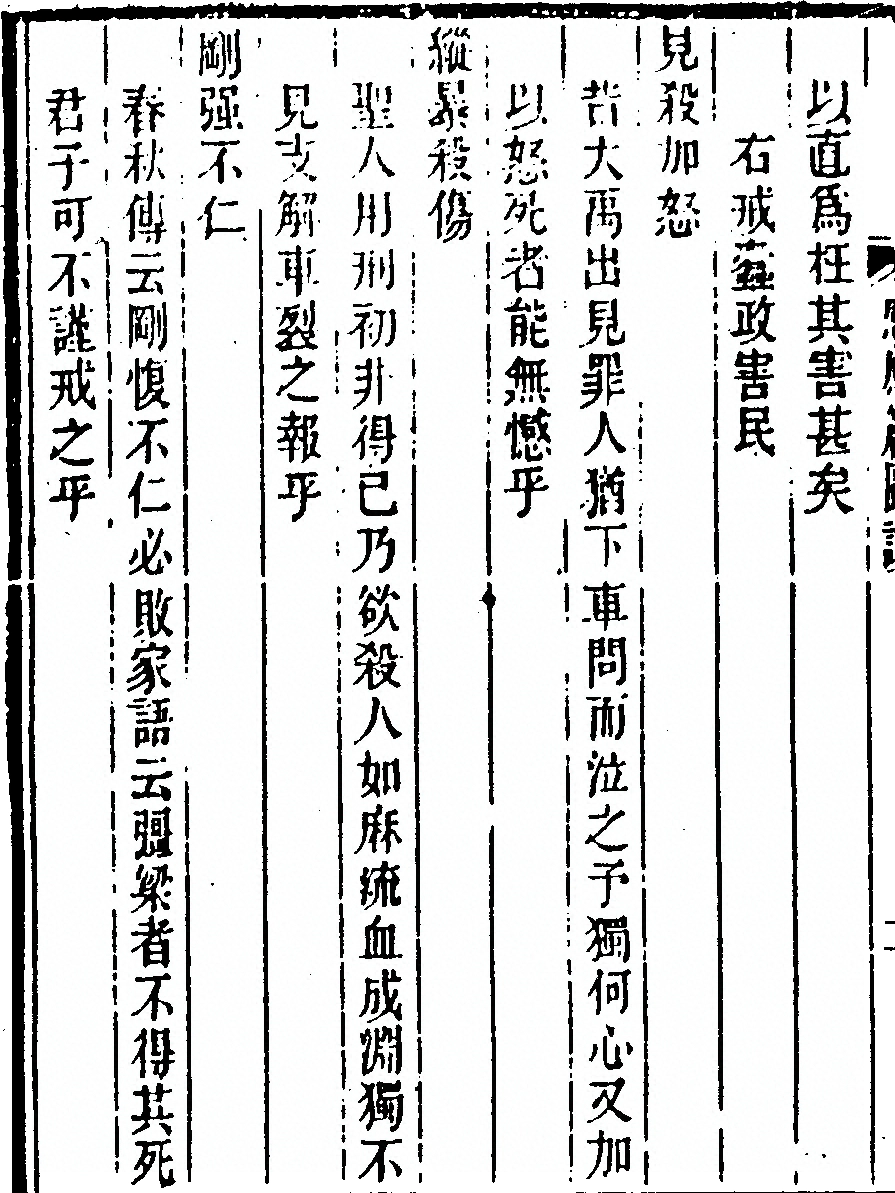 以直爲枉其害甚矣
右戒蠧政害民
見殺加怒
昔大禹出見罪人猶下車問而泣之予獨何心又加
以怒死者能無憾乎
縱暴殺傷
聖人用刑初非得已乃欲殺人如麻流血成淵獨不
見支解車裂之報乎
剛强不仁
春秋傳云剛愎不仁必敗家語云彊梁者不得其死
君子可不謹戒之乎